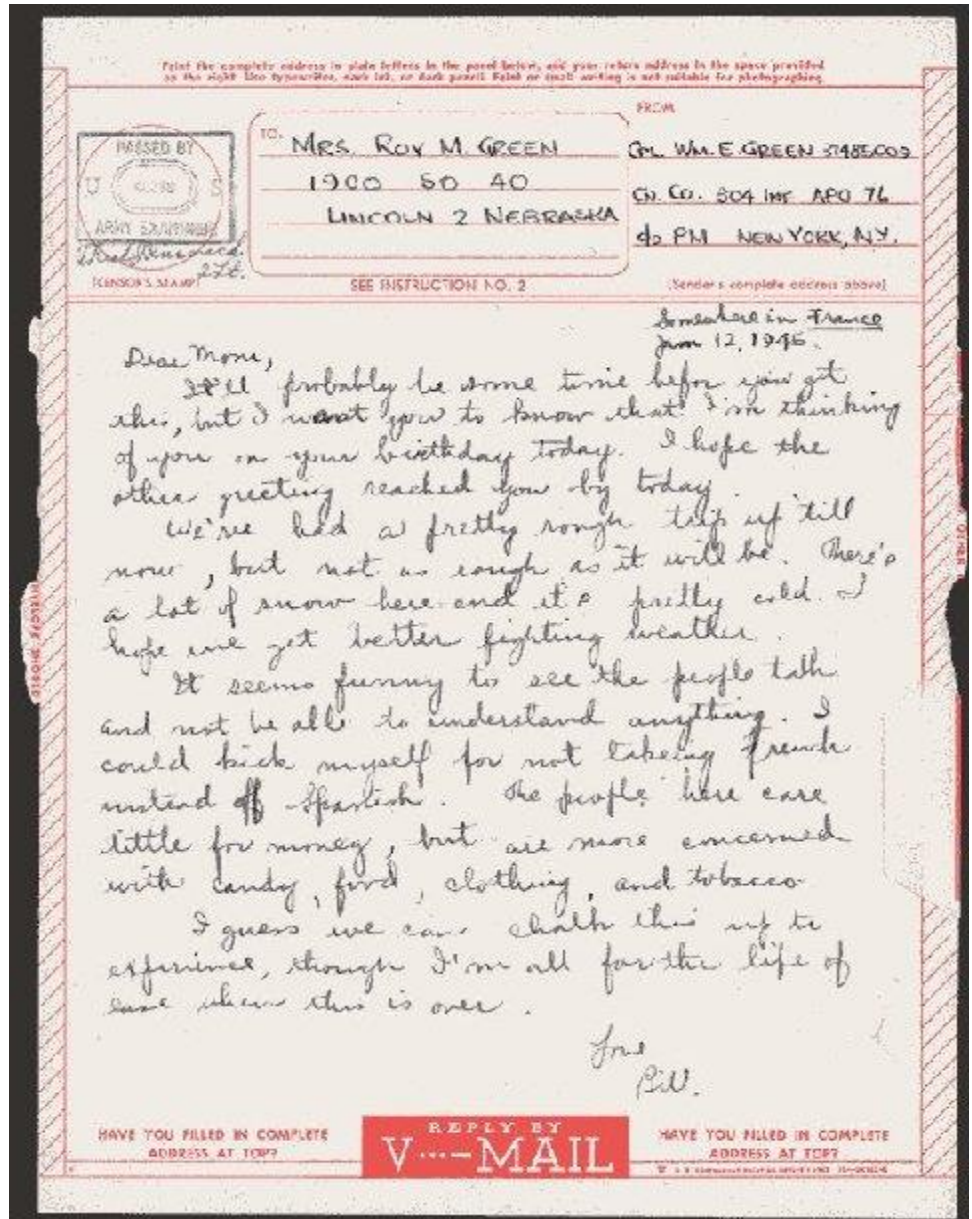 Print the complete address in plain letters in the panel below, and your return address in the space provided
on the right. Use typewriter, dark ink, or dark pencil. Faint or small writing is not suitable for photographing.
FROM
TO.
MRS. ROY M. GREEN
1900 SO 40
LINCOLN 2 NEBRASKA
CPL WM. E. GREEN 37485009
CN. CO. 504 INF APO 76
c/o PM NEW YORK, N.Y.
PASSED BY
U S
ARMY EXAMINER
2Lt.
(CENSOR'S STAMP)
SEE INSTRUCTION NO. 2
(Sender's complete address above)
Somewhere in France
Jan 12, 1945.
Dear Mom,
It'll probably be some time befor you get
this, but I want you to know that I'm thinking
of you on your birthday today. I hope the
other greeting reached you by today.
We've had a pretty rough trip up 'till
now, but not as rough as it will be. There's
a lot of snow here and it's pretty cold. I
hope we get better fighting weather.
It seems funny to see the people talk
and not be able to understand anything. I
could kick myself for not takeing French
instead off Spanish. The people here care
little for money, but are more concerned
with candy, food, clothing, and tobacco
I guess we can chalk this up to
experience, though I'm all for the life of
ease when this is over.
Love
Bill.
HAVE YOU FILLED IN COMPLETE
ADDRESS AT TOP?
REPLY BY
V···—MAIL
HAVE YOU FILLED IN COMPLETE
ADDRESS AT TOP?